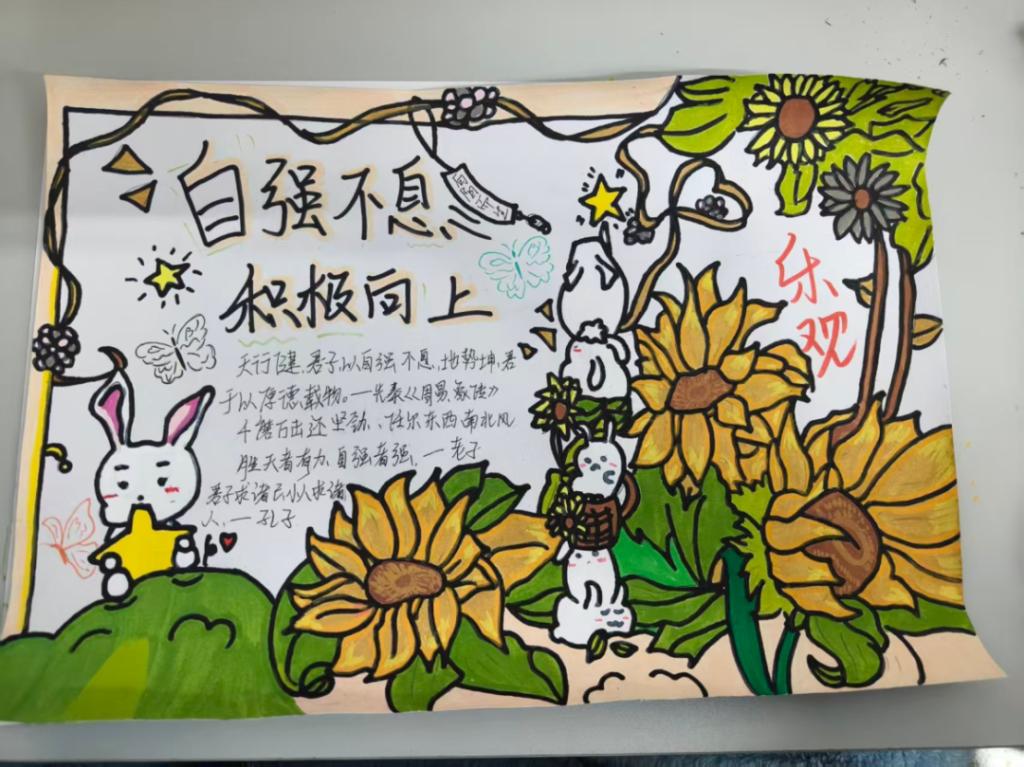 自强不息
积极向上
乐观
天行健,君子以自强不息,地势坤,君
子以厚德载物。—先秦《周易·象传》
千磨万击还坚劲、任尔东西南北风
胜人者有力,自强者强,—老子
君子求诸己小人求诸
人,—孔子